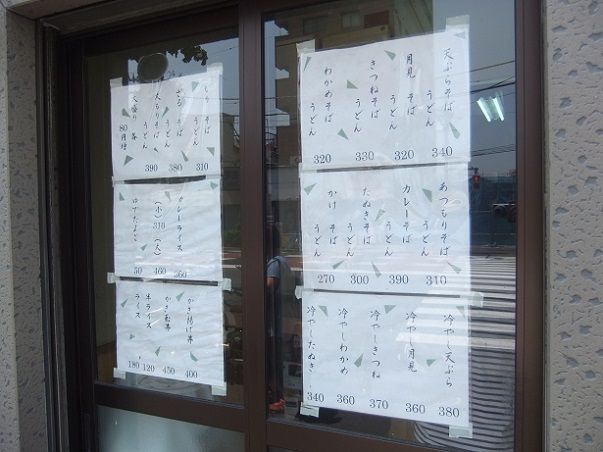 天ぷらそば うどん 340
月見 そば うどん 320
きつねそば うどん 330
わかめそば うどん 320
あつもりそば うどん 310
カレーそば うどん 390
たぬきそば うどん 300
かけ そば うどん 270
冷やし天ぷら 380
冷やし月見 360
冷やしきつね 370
冷やしわかめ 360
冷やしたぬき 340
もりそば うどん 310
ざる そば うどん 380
大もりそば うどん 390
大盛り 80円増
カレーライス 560
(大) 460
(小) 310
ゆでたまご 50
かき揚げ丼 400
450
半ライス 120
ライス 180